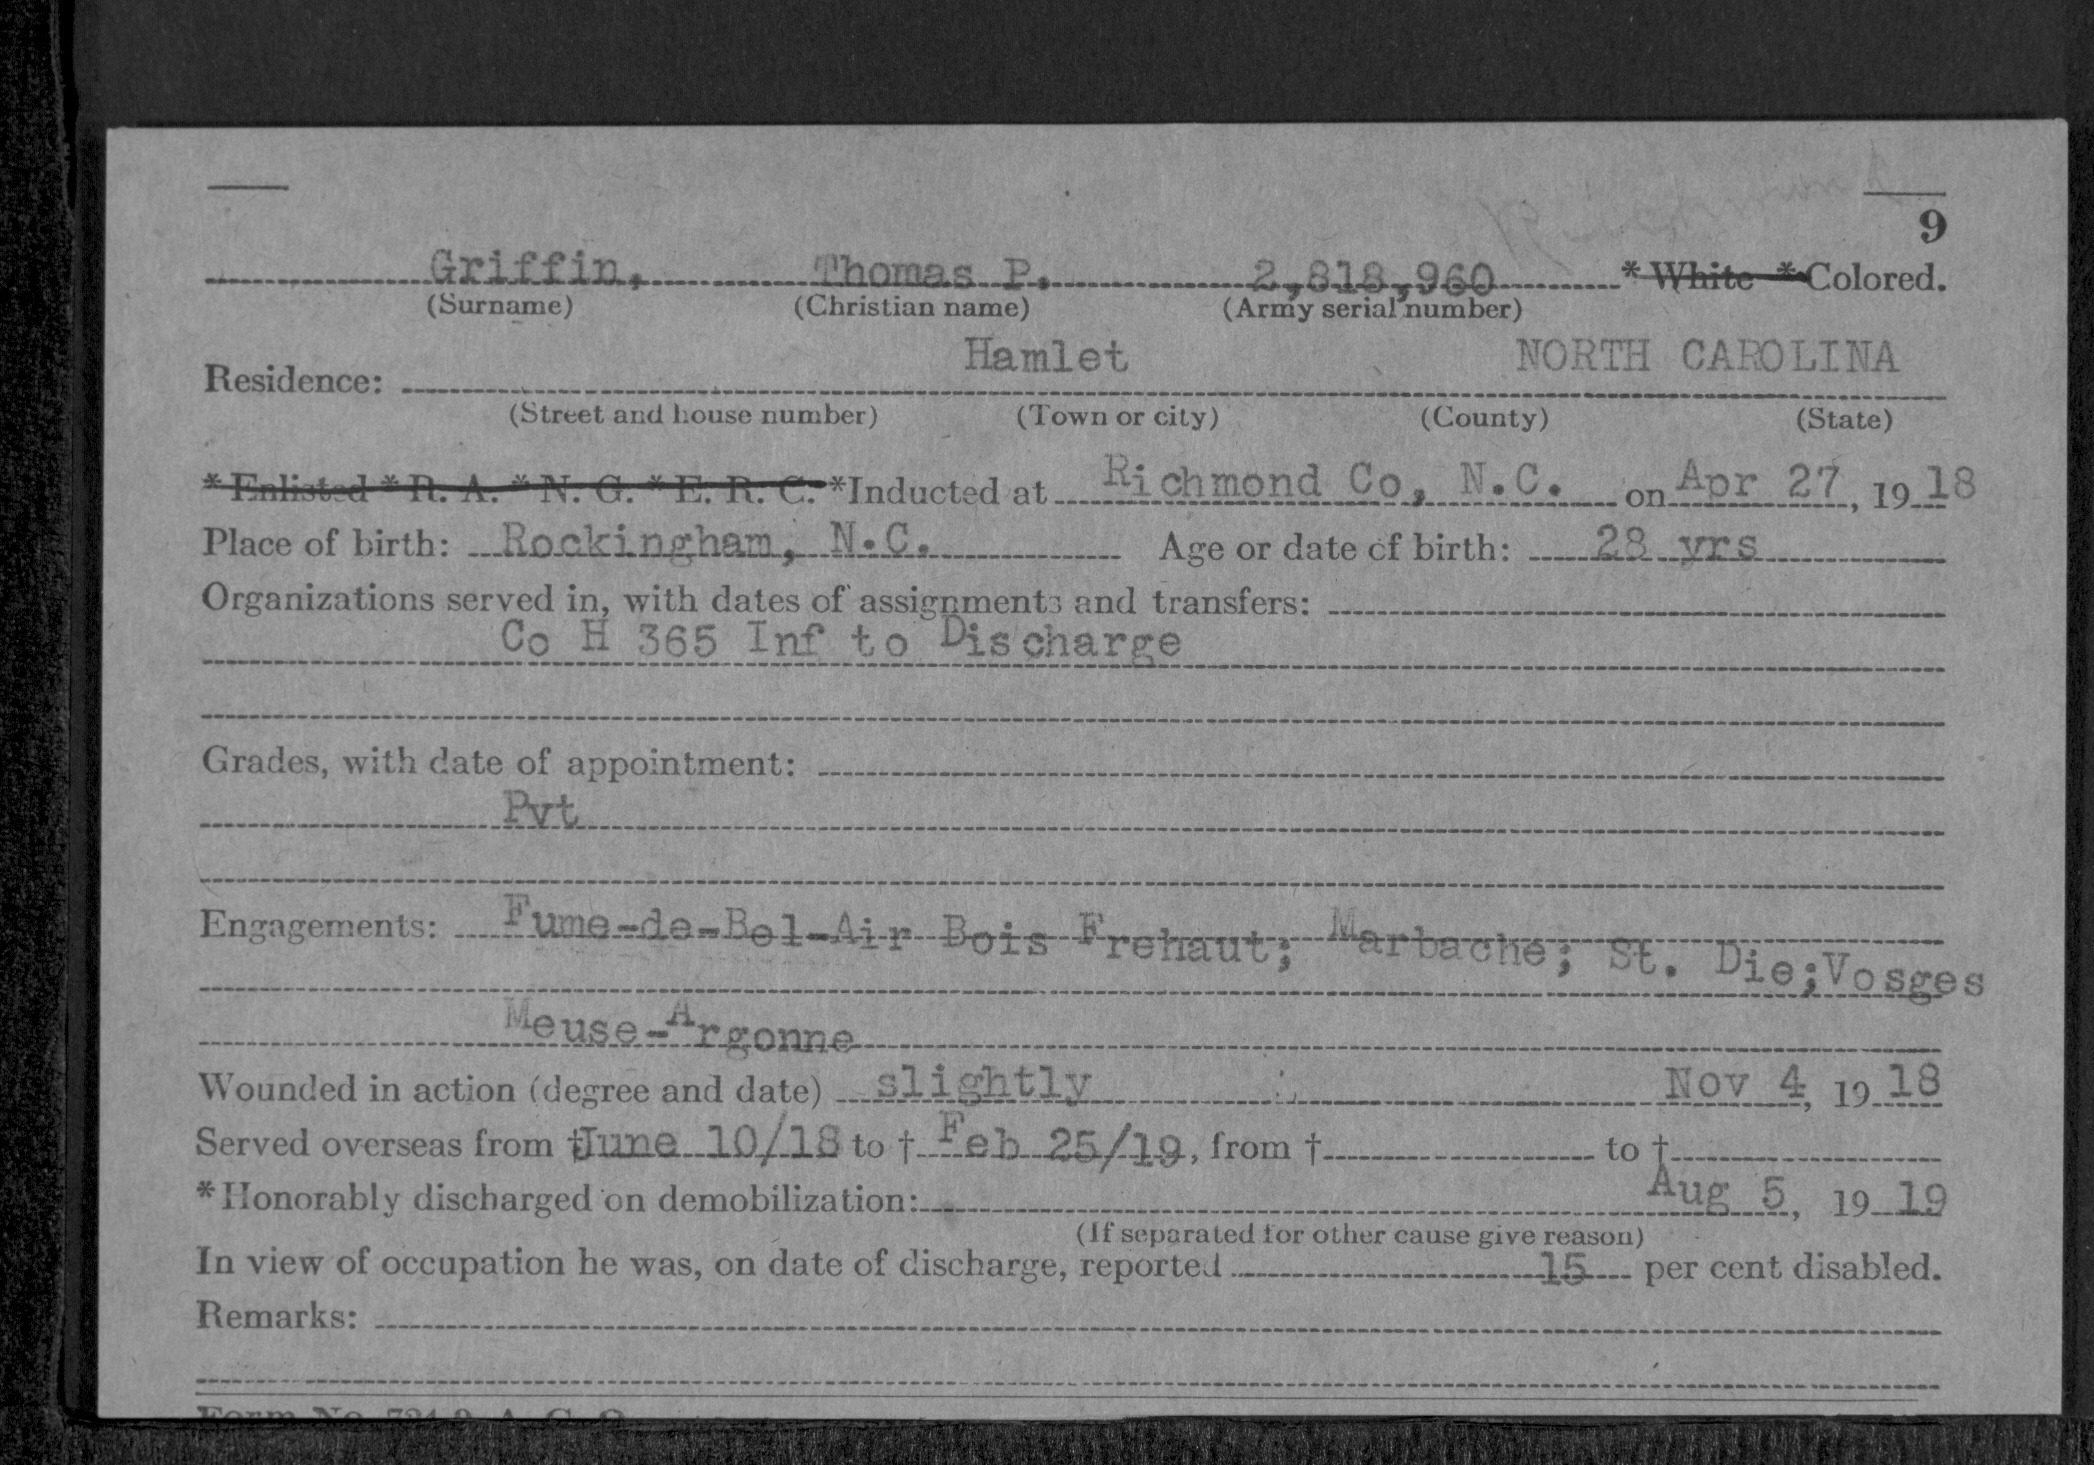 9
Griffin, Thomas P. 2,818,960 * White * Colored.
(Surname) (Christian name) (Army serial number)
Hamlet NORTH CAROLINA
Residence:
(Street and house number) (Town or city) (County) (State)
* Enlisted * R. A. * N. G. * E. R. C. *Inducted at Richmond Co, N.C. on Apr 27, 19 18
Place of birth: Rockingham, N.C. Age or date of birth: 28 yrs
Organizations served in, with dates of assignments and transfers:
Co H 365 Inf to Discharge
Grades, with date of appointment:
Pvt
Engagements: Fume-de-Bel-Air Bois Frehaut; Marbache; St. Die; Vosges
Meuse-Argonne
Wounded in action (degree and date) slightly Nov 4, 19 18
Served overseas from † June 10/18 to † Feb 25/19, from † to †
* Honorably discharged on demobilization: Aug 5, 19 19
(If separated for other cause give reason)
In view of occupation he was, on date of discharge, reported 15 per cent disabled.
Remarks: